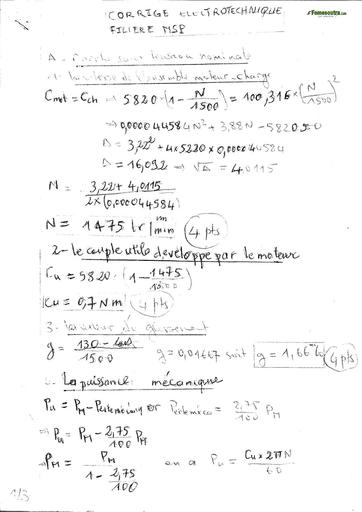 CORRIGE ELECTROTECHNIQUE
Fomesoutra.com
FILIERE MSP
A - sous tension nominale
1 - la vitesse de l'ensemble moteur-charge
Cmot = Cch ⇒ 5820·(1 - N/1500) = 100,316 × (N/1500)²
⇒ 0,000044584N² + 3,88N - 5820 = 0
Δ = 3,22² + 4×5820×0,000044584
Δ = 16,092 → √Δ = 4,0115
N = 3,22 + 4,0115 / 2×(0,000044584)
N = 1475 tr/min 4 pts
2 - le couple utile développé par le moteur
Cu = 5820·(1 - 1475/1500)
Cu = 0,7 Nm 4 pts
3 - du glissement
g = /1500 g = 0,01667 soit g = 1,66 4 pts
La puissance mécanique
Pu = PM - Pertemécanq or Pertemeca = 2,75/100 PM
⇒ Pu = PM - 2,75/100 PM
⇒ PM = PM / 1 - 2,75/100 on a Pu = Cu × 2πN / 60
1/3